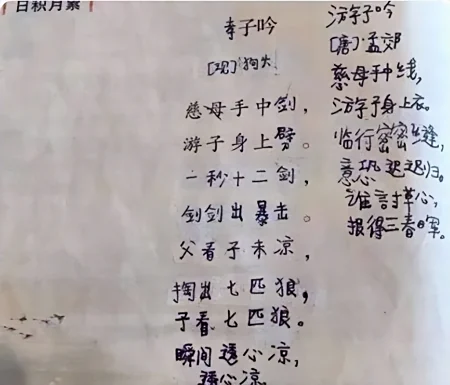 日积月累
子吟
[现]狗
慈母手中剑，
游子身上劈。
一秒十二剑，
剑剑出暴击。
父看子未凉，
掏出七匹狼，
子看七匹狼。
瞬间透心凉，
透心凉
游子吟
[唐]孟郊
慈母手中线，
游子身上衣。
临行密密缝，
意恐迟迟归。
谁言寸草心，
报得三春晖。